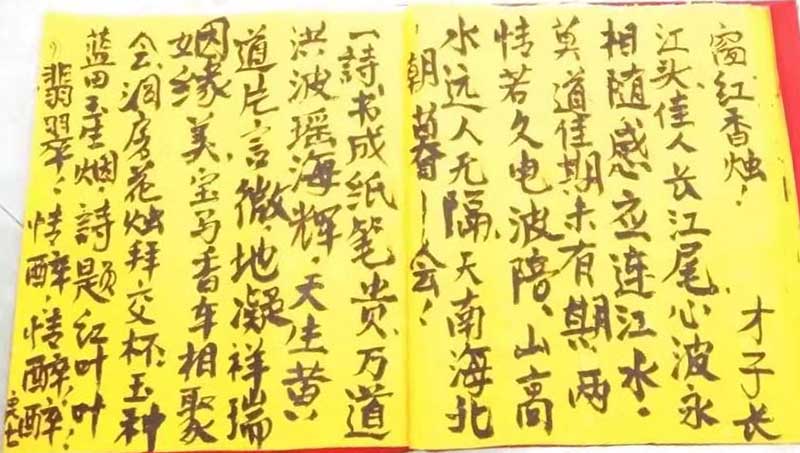 窗红香烛！才子长
江头佳人长江尾心波永
相随感应连江水。
莫道佳期未有期，两
情若久电波陪、山高
水远人无隔，天南海北
朝暮一会！
一詩书成纸笔贵，万道
洪波瑶海辉，天生黄
道片言微，地凝祥瑞
姻缘美，宝马香车相聚
会，洞房花烛拜交杯，玉神
蓝田玉生烟，詩题红叶叶
翡翠！情醉，情醉醉！